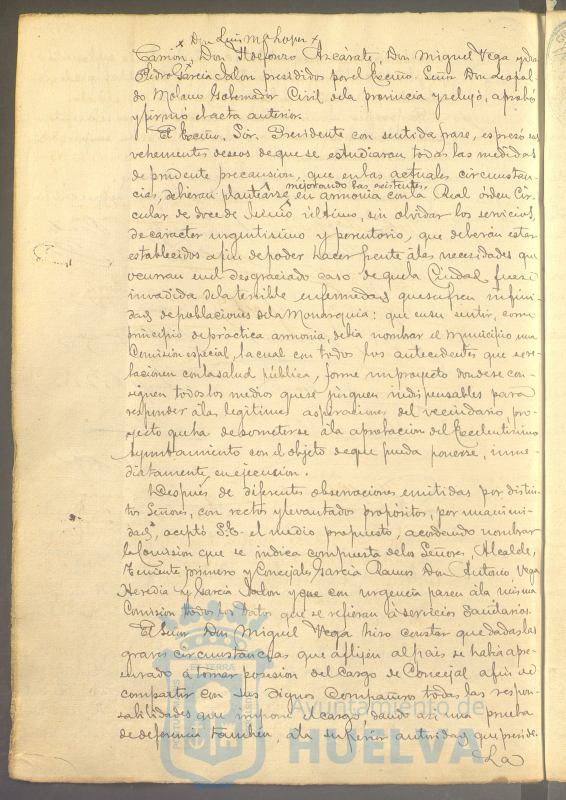 Don Luis Mª Lopez
Carrion, Don Ildefonso Azcárate, Don Miguel Vega y don
Pedro García Jalon presididos por el Excmo. Señor Don Leopol-
do Molano Gobernador Civil de la provincia y se leyó, aprobó
y firmó el acta anterior.
El Excmo. Sor. Presidente con sentida frase, espresó sus
vehementes deseos de que se estudiaran todas las medidas
de prudente precaucion, que en las actuales circunstan-
mejorando las existentes,
cias, debieran plantearse en armonia con la Real órden Cir-
cular de doce de Junio último, sin olvidar los servicios,
de carácter urgentisimo y perentorio, que deberán estar
establecidos afin de poder hacer frente á las necesidades que
ocurran en el desgraciado caso de que la Ciudad fuera
invadida de la terrible enfermedad que sufren infini-
dad de poblaciones de la Monarquia: que en su sentir, como
principio de práctica armonia, debia nombrar el Municipio una
Comision especial, la cual con todos los antecedentes que se re-
lacionen con la salud pública, forme un proyecto donde se con-
signen todos los medios que se juzguen indispensables para
responder á las legitimas aspiraciones del vecindario, pro-
yecto que ha de someterse á la aprobacion del Excelentisimo
Ayuntamiento con el objeto de que pueda ponerse, inme-
diatamente, en ejecucion.
Despues de diferentes observaciones emitidas por distin-
tos Señores, con rectos y levantados propósitos, por unanimi-
dad, aceptó S.E. el medio propuesto, acordando nombrar
la Comision que se indica compuesta de los Señores, Alcalde,
Teniente primero y Concejales García Ramos Don Antonio Vega
Heredia y García Jalon y que con urgencia pasen á la misma
Comision todos los datos que se refieran á servicios sanitarios.
El Señor Don Miguel Vega hizo constar que dadas las
graves circunstancias que aflijen al pais se habia apre-
surado á tomar posesion del cargo de Concejal afin de
compartir con sus dignos Compañeros todas las respon-
sabilidades que impone el cargo, dando asi una prueba
de deferencia tambien, á la superior autoridad que preside.
La
Ayuntamiento de
HUELVA